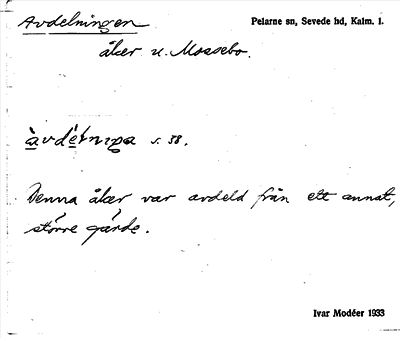 Avdelningen Pelarne sn, Sevede hd, Kalm. l.
åker u. Mossebo.
s. 38.
Denna åker var avdeld från ett annat,
större gärde.
Ivar Modéer 1933